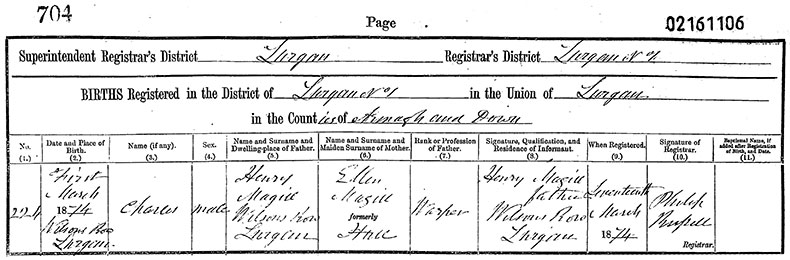 704 Page 02161106
Superintendent Registrar's District Lurgan Registrar's District Lurgan No 1
BIRTHS Registered in the District of Lurgan No 1 in the Union of Lurgan
in the Counties of Armagh and Down
No. (1.) Date and Place of Birth. (2.) Name (if any). (3.) Sex. (4.) Name and Surname and Dwelling-place of Father. (5.) Name and Surname and Maiden Surname of Mother. (6.) Rank or Profession of Father. (7.) Signature, Qualification, and Residence of Informant. (8.) When Registered. (9.) Signature of Registrar. (10.) Baptismal Name, if added after Registration of Birth, and Date. (11.)
224
First
March
1874
Wilsons Row
Lurgan
Charles
male
Henry
Magill
Wilsons Row
Lurgan
Ellen
Magill
formerly
Hall
Warper
Henry Magill
father
Wilsons Row
Lurgan
Seventeenth
March
1874
Philip
Russell
Registrar.